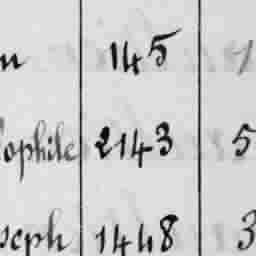 n 145 1
ophile 2143 5
seph 1448 3